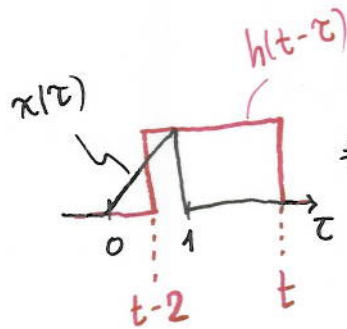 h(t-τ)
x(τ)
=
0 1 τ
t-2 t